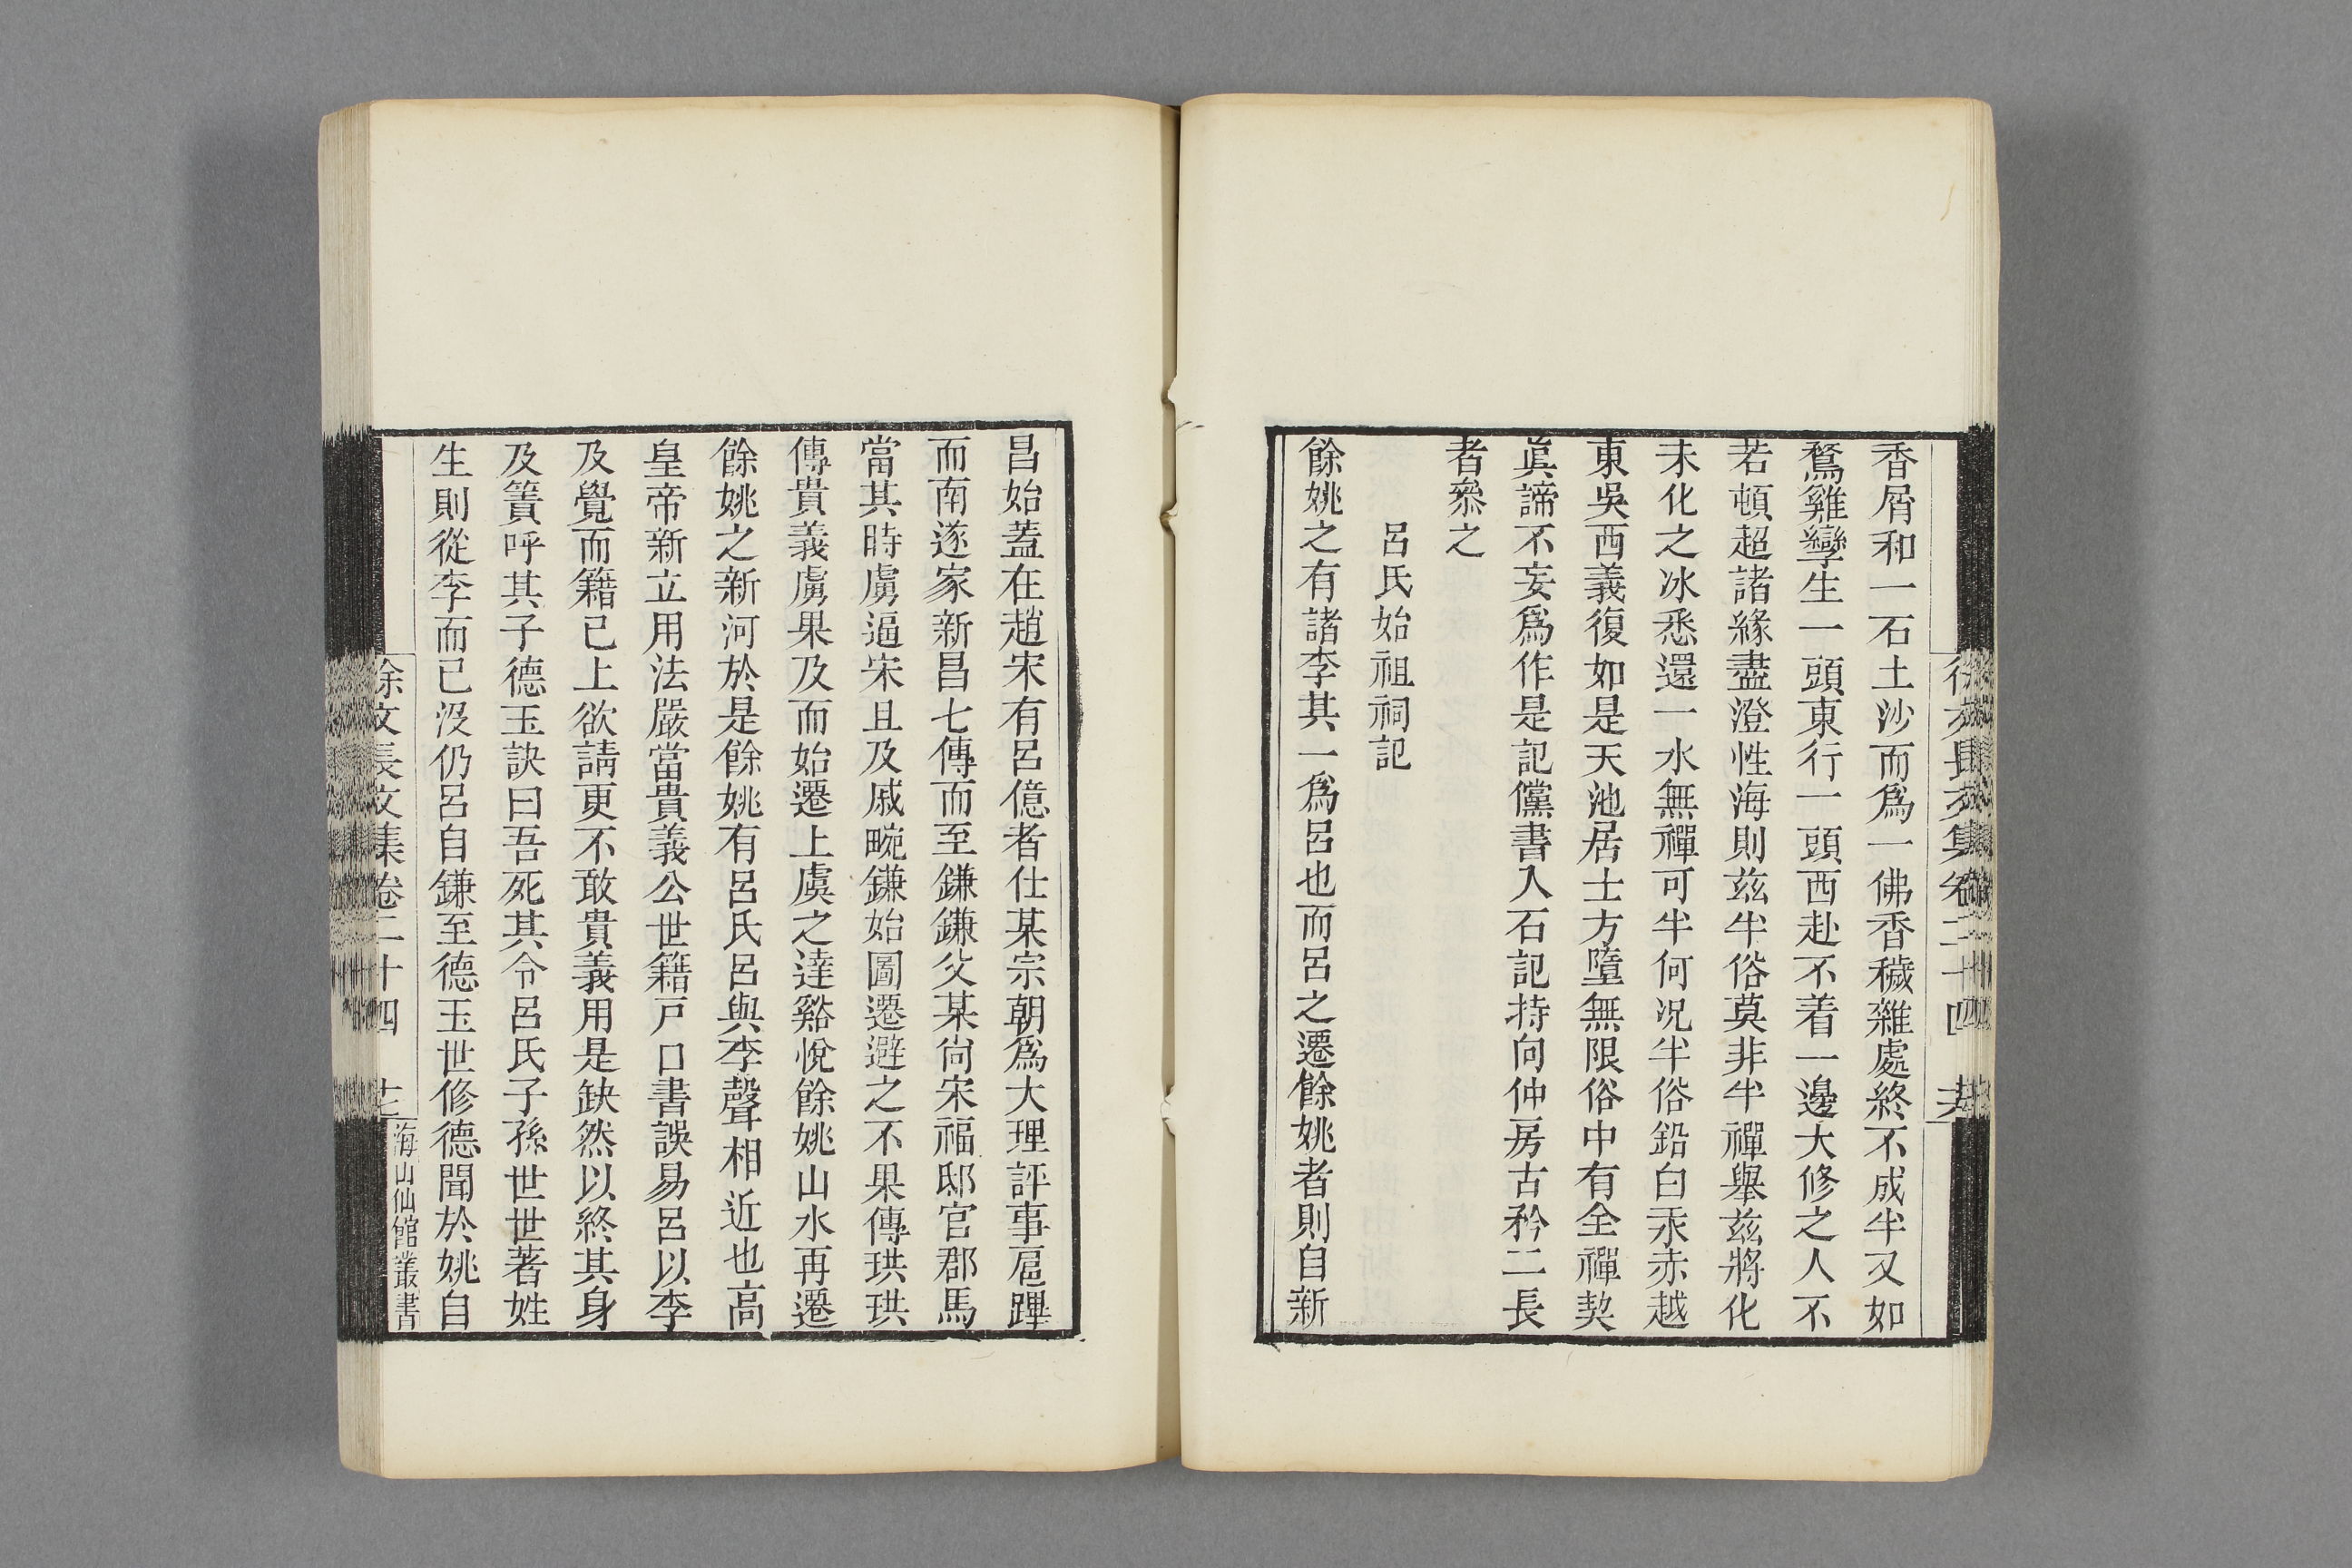 香屑和一石土沙而爲一佛香穢雜處終不成半又如
鶩雞孿生一頭東行一頭西赴不着一邊大修之人不
若頓超諸緣盡澄性海則兹半俗莫非半禪舉兹將化
未化之冰悉還一水無禪可半何况半俗鉛白汞赤越
東吳西義復如是天池居士方墮無限俗中有全禪契
眞諦不妄爲作是記儻書入石記持向仲房古矜二長
者叅之
呂氏始祖祠記
餘姚之有諸李其一爲呂也而呂之遷餘姚者則自新
昌始蓋在趙宋有呂億者仕某宗朝爲大理評事扈蹕
而南遂家新昌七傳而至鎌鎌父某尙宋福邸官郡馬
當其時虜逼宋且及戚畹鎌始圖遷避之不果傳珙珙
傳貴義虜果及而始遷上虞之達谿悅餘姚山水再遷
餘姚之新河於是餘姚有呂氏呂與李聲相近也高
皇帝新立用法嚴當貴義公世籍戸口書誤易呂以李
及覺而籍已上欲請更不敢貴義用是缺然以終其身
及簀呼其子德玉訣曰吾死其令呂氏子孫世世著姓
生則從李而已沒仍呂自鎌至德玉世修德聞於姚自
徐文長文集卷二十四
海山仙館叢書